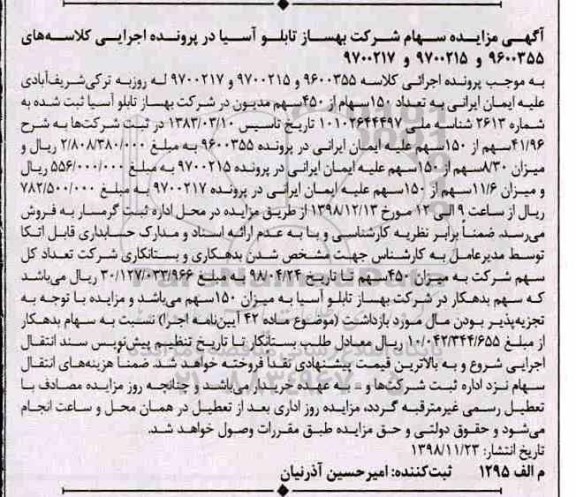 آگهی مزایده سهام شرکت بهساز تابلو آسیا در پرونده اجرایی کلاسه‌های
۹۶۰۰۳۵۵ و ۹۷۰۰۲۱۵ و ۹۷۰۰۲۱۷
به موجب پرونده اجرائی کلاسه ۹۶۰۰۳۵۵ و ۹۷۰۰۲۱۵ و ۹۷۰۰۲۱۷ له روزبه ترکی‌شریف‌آبادی
علیه ایمان ایرانی به تعداد ۱۵۰سهام از ۴۵۰سهم مدیون در شرکت بهساز تابلو آسیا ثبت شده به
شماره ۲۶۱۳ شناسه ملی ۱۰۱۰۲۶۴۴۴۹۷ تاریخ تاسیس ۱۳۸۳/۰۳/۱۰ در ثبت شرکت‌ها به شرح
۴۱/۹۶سهم از ۱۵۰سهم علیه ایمان ایرانی در پرونده ۹۶۰۰۳۵۵ به مبلغ ۲/۸۰۸/۳۸۰/۰۰۰ ریال و
میزان ۸/۳۰سهم از ۱۵۰سهم علیه ایمان ایرانی در پرونده ۹۷۰۰۲۱۵ به مبلغ ۵۵۶/۰۰۰/۰۰۰ ریال
و میزان ۱۱/۶سهم از ۱۵۰سهم علیه ایمان ایرانی در پرونده ۹۷۰۰۲۱۷ به مبلغ ۷۸۲/۵۰۰/۰۰۰
ریال از ساعت ۹ الی ۱۲ مورخ ۱۳۹۸/۱۲/۱۳ از طریق مزایده در محل اداره ثبت گرمسار به فروش
می‌رسد ضمناً برابر نظریه کارشناسی و بنا به عدم ارائه اسناد و مدارک حسابداری قابل اتکا
توسط مدیرعامل به کارشناس جهت مشخص شدن بدهکاری و بستانکاری شرکت تعداد کل
سهم شرکت به میزان ۴۵۰سهم تا تاریخ ۹۸/۰۴/۲۴ به مبلغ ۳۰/۱۲۷/۰۳۳/۹۶۶ ریال می‌باشد
که سهم بدهکار در شرکت بهساز تابلو آسیا به میزان ۱۵۰سهم می‌باشد و مزایده با توجه به
تجزیه‌پذیر بودن مال مورد بازداشت (موضوع ماده ۴۲ آیین‌نامه اجرا) نسبت به سهام بدهکار
از مبلغ ۱۰/۰۴۲/۳۴۴/۶۵۵ ریال معادل طلب بستانکار تا تاریخ تنظیم پیش‌نویس سند انتقال
اجرایی شروع و به بالاترین قیمت پیشنهادی نقداً فروخته خواهد شد ضمناً هزینه‌های انتقال
سهام نزد اداره ثبت شرکت‌ها و ... به عهده خریدار می‌باشد و چنانچه روز مزایده مصادف با
تعطیل رسمی غیرمترقبه گردد، مزایده روز اداری بعد از تعطیل در همان محل و ساعت انجام
می‌شود و حقوق دولتی و حق مزایده طبق مقررات وصول خواهد شد.
تاریخ انتشار: ۱۳۹۸/۱۱/۲۳
م الف ۱۲۹۵ ثبت‌کننده: امیرحسین آذرنیان